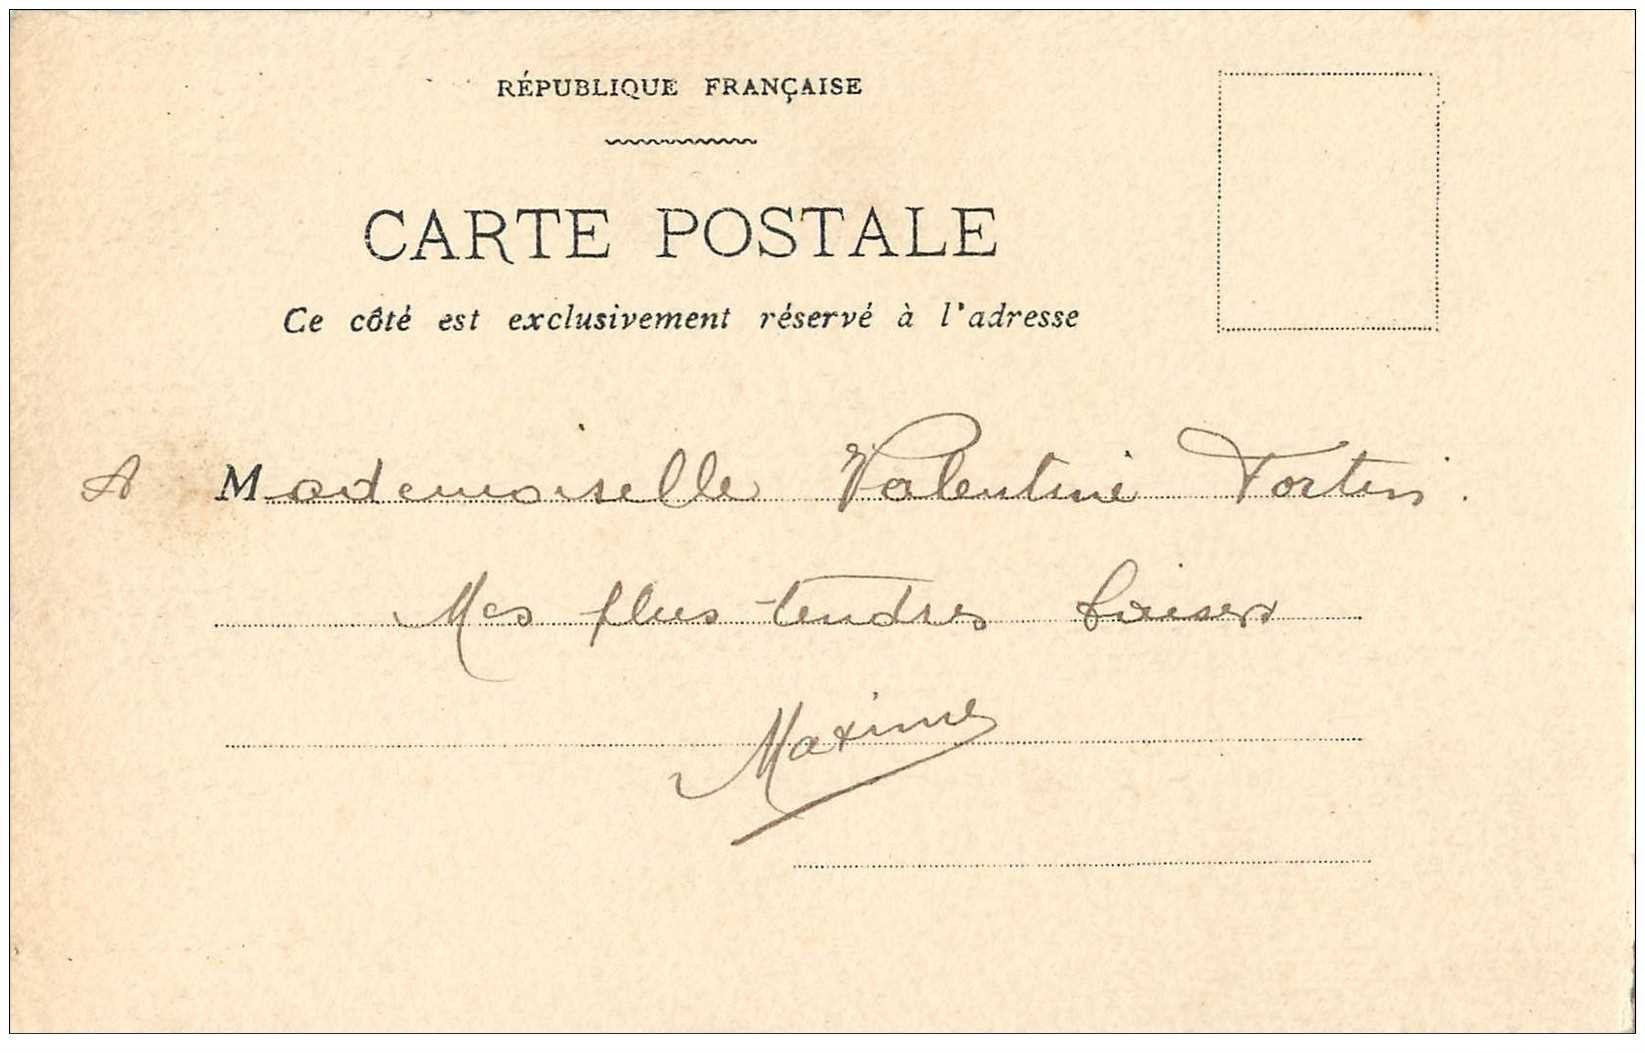 RÉPUBLIQUE FRANÇAISE
CARTE POSTALE
Ce côté est exclusivement réservé à l'adresse
A Mademoiselle Valentine Fortin.
Mes plus tendres baisers
Maxime